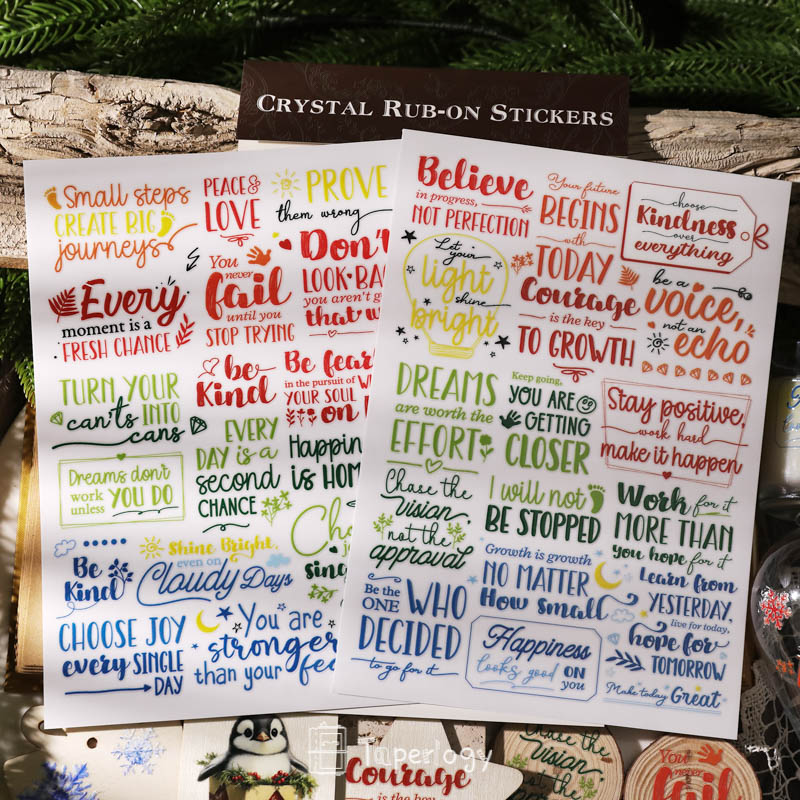 CRYSTAL RUB-ON STICKERS
Small steps
CREATE BIG
journeys
PEACE &
LOVE
PROVE
them wrong
Every
moment is a
FRESH CHANCE
You
never
fail
until you
STOP TRYING
Don't
LOOK BA
you aren't g
that w
TURN YOUR
can'ts INTO
cans
be
Kind
Be fear
in the pursuit of W
YOUR SOUL
on
Dreams don't
work
unless YOU DO
EVERY
DAY is a
second
CHANCE
Happin
is HOM
Be
Kind
Shine Bright,
even on
Cloudy Days
sinc
CHOOSE JOY
every SINGLE
DAY
You are
stronger
than your fea
Believe
in progress,
NOT PERFECTION
Your future
BEGINS
with
TODAY
choose
Kindness
over
everything
Let
your
light
shine
bright
Courage
is the key
TO GROWTH
be a
voice,
not an
echo
DREAMS
are worth the
EFFORT
Keep going,
YOU ARE
GETTING
CLOSER
Stay positive,
work hard
make it happen
Chase the
Vision,
not the
approval
I will not
BE STOPPED
Work for it
MORE THAN
you hope for it
Be the
ONE WHO
DECIDED
to go for it
Growth is growth
NO MATTER
How small
Learn from
YESTERDAY,
live for today,
hope for
TOMORROW
Happiness
looks good ON
you
Make today Great
Taperlogy
Courage
is the key
Chase the
Vision
not the
You
never
fail